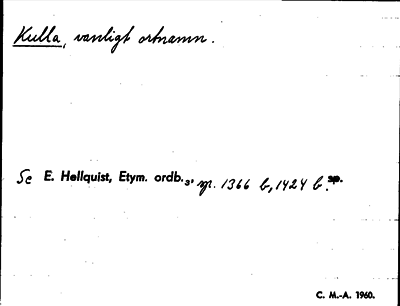 Kulla, vanligt ortnamn.
Se E. Hellquist, Etym. ordb.3, 1366 b, 1424 b. sp.
C. M.-A. 1960.